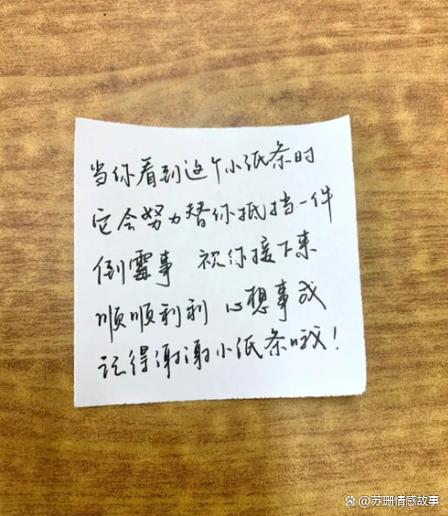 当你看到这个小纸条时
它会努力替你抵挡一件
倒霉事 祝你接下来
顺顺利利 心想事成
记得谢谢小纸条哦!
苏珊情感故事